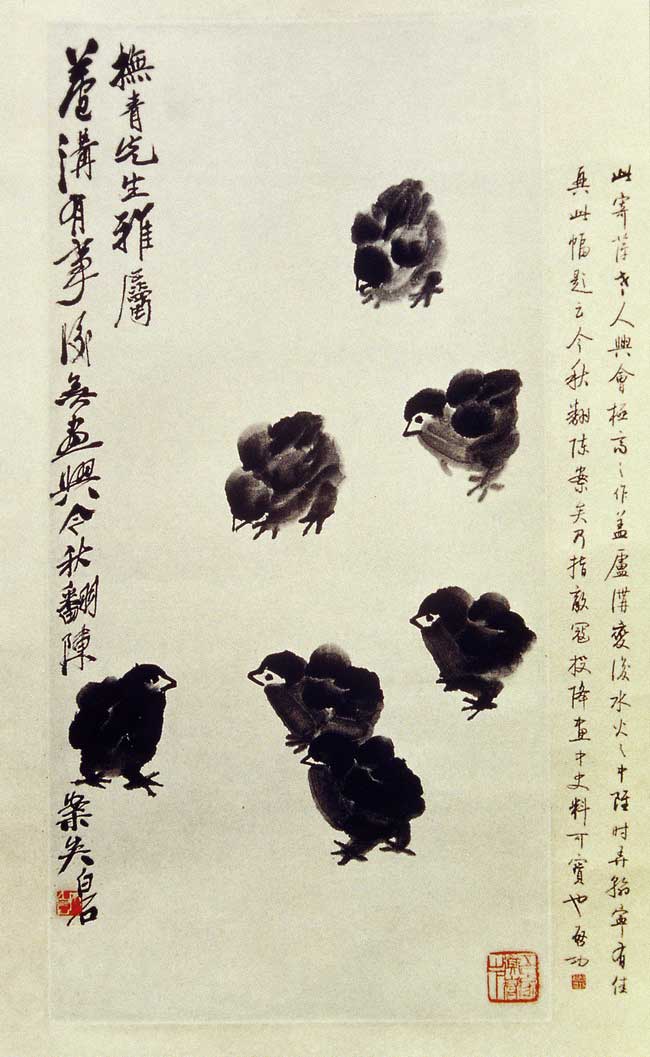 此寄萍老人興會極高之作蓋盧溝變後水火之中雖時弄翰寧有佳
興此幅題云今秋翻陳案矣乃指敵寇投降畫中史料可寶也啟功
撫青先生雅屬
蘆溝有事後無畫興今秋翻陳案矣白石